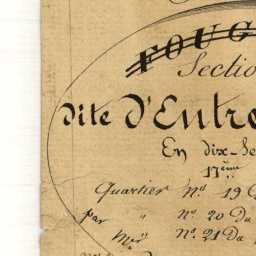 FOUG
Section
Dite D'Entre
En dix-Se
17ème
Quartier Nd 19 C
par " nº 20 Du
Mr " nº 21 Du